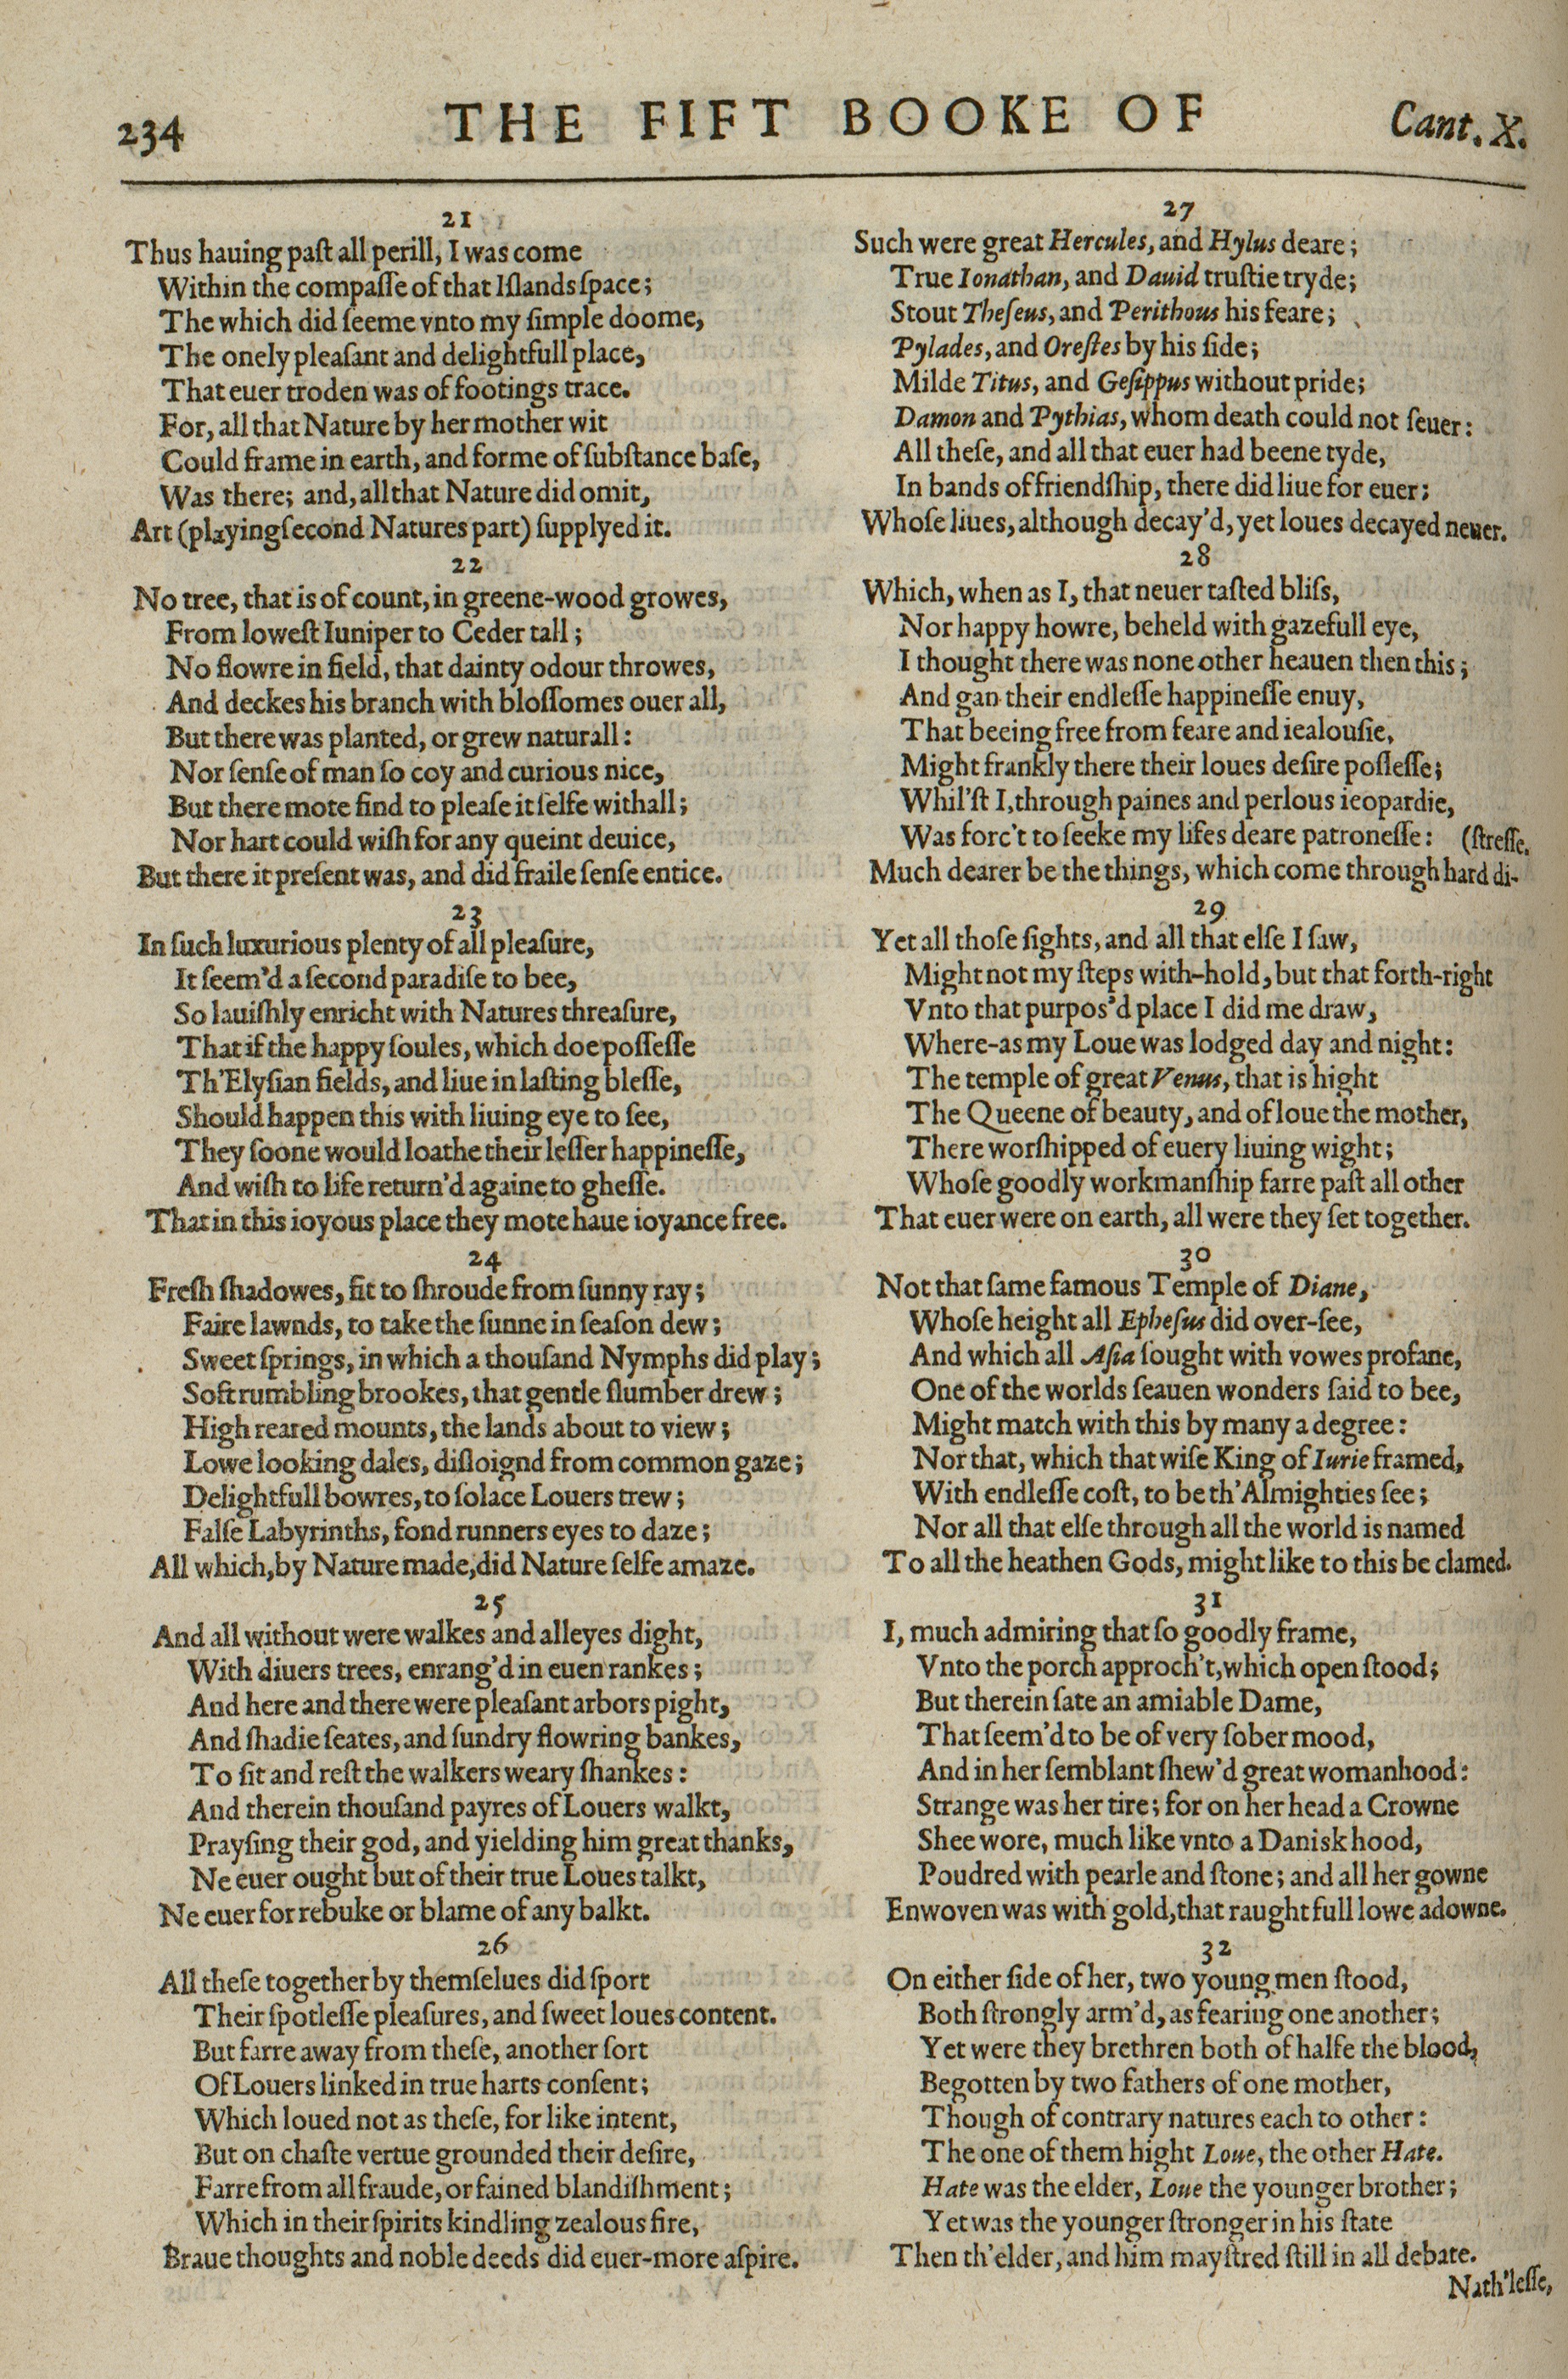 234
THE FIFT BOOKE OF
Cant. X.
21
Thus hauing paſt all perill, I was come
Within the compaſſe of that Iſlands ſpace;
The which did ſeeme vnto my ſimple doome,
The onely pleaſant and delightfull place,
That euer troden was of footings trace.
For, all that Nature by her mother wit
Could frame in earth, and forme of ſubſtance baſe,
Was there; and, all that Nature did omit,
Art (playing ſecond Natures part) ſupplyed it.
22
No tree, that is of count, in greene-wood growes,
From loweſt Iuniper to Ceder tall;
No flowre in field, that dainty odour throwes,
And deckes his branch with bloſſomes ouer all,
But there was planted, or grew naturall:
Nor ſenſe of man ſo coy and curious nice,
But there mote find to pleaſe it ſelfe withall;
Nor hart could wiſh for any queint deuice,
But there it preſent was, and did fraile ſenſe entice.
23
In ſuch luxurious plenty of all pleaſure,
It ſeem'd a ſecond paradiſe to bee,
So lauiſhly enricht with Natures threaſure,
That if the happy ſoules, which doe poſſeſſe
Th'Elyſian fields, and liue in laſting bleſſe,
Should happen this with liuing eye to ſee,
They ſoone would loathe their leſſer happineſſe,
And wiſh to life return'd againe to gheſſe.
That in this ioyous place they mote haue ioyance free.
24
Freſh ſhadowes, fit to ſhroude from ſunny ray;
Faire lawnds, to take the ſunne in ſeaſon dew;
Sweet ſprings, in which a thouſand Nymphs did play;
Soft rumbling brookes, that gentle ſlumber drew;
High reared mounts, the lands about to view;
Lowe looking dales, diſloignd from common gaze;
Delightfull bowres, to ſolace Louers trew;
Falſe Labyrinths, fond runners eyes to daze;
All which, by Nature made, did Nature ſelfe amaze.
25
And all without were walkes and alleyes dight,
With diuers trees, enrang'd in euen rankes;
And here and there were pleaſant arbors pight,
And ſhadie ſeates, and ſundry flowring bankes,
To ſit and reſt the walkers weary ſhankes:
And therein thouſand payres of Louers walkt,
Prayſing their god, and yielding him great thanks,
Ne euer ought but of their true Loues talkt,
Ne euer for rebuke or blame of any balkt.
26
All theſe together by themſelues did ſport
Their ſpotleſſe pleaſures, and ſweet loues content.
But farre away from theſe, another ſort
Of Louers linked in true harts conſent;
Which loued not as theſe, for like intent,
But on chaſte vertue grounded their deſire,
Farre from all fraude, or fained blandiſhment;
Which in their ſpirits kindling zealous fire,
Braue thoughts and noble deeds did euer-more aſpire.
27
Such were great Hercules, and Hylus deare;
True Ionathan, and Dauid truſtie tryde;
Stout Theſeus, and Perithous his feare;
Pylades, and Oreſtes by his ſide;
Milde Titus, and Geſippus without pride;
Damon and Pythias, whom death could not ſeuer:
All theſe, and all that euer had beene tyde,
In bands of friendſhip, there did liue for euer;
Whoſe liues, although decay'd, yet loues decayed neuer.
28
Which, when as I, that neuer taſted bliſs,
Nor happy howre, beheld with gazefull eye,
I thought there was none other heauen then this;
And gan their endleſſe happineſſe enuy,
That beeing free from feare and iealouſie,
Might frankly there their loues deſire poſſeſſe;
Whil'ſt I, through paines and perlous ieopardie,
Was forc't to ſeeke my lifes deare patroneſſe: (ſtreſſe.
Much dearer be the things, which come through hard di-
29
Yet all thoſe ſights, and all that elſe I ſaw,
Might not my ſteps with-hold, but that forth-right
Vnto that purpos'd place I did me draw,
Where-as my Loue was lodged day and night:
The temple of great Venus, that is hight
The Queene of beauty, and of loue the mother,
There worſhipped of euery liuing wight;
Whoſe goodly workmanſhip farre paſt all other
That euer were on earth, all were they ſet together.
30
Not that ſame famous Temple of Diane,
Whoſe height all Epheſus did over-ſee,
And which all Aſia ſought with vowes profane,
One of the worlds ſeauen wonders ſaid to bee,
Might match with this by many a degree:
Nor that, which that wiſe King of Iurie framed,
With endleſſe coſt, to be th'Almighties ſee;
Nor all that elſe through all the world is named
To all the heathen Gods, might like to this be clamed.
31
I, much admiring that ſo goodly frame,
Vnto the porch approch't, which open ſtood;
But therein ſate an amiable Dame,
That ſeem'd to be of very ſober mood,
And in her ſemblant ſhew'd great womanhood:
Strange was her tire; for on her head a Crowne
Shee wore, much like vnto a Danisk hood,
Poudred with pearle and ſtone; and all her gowne
Enwoven was with gold, that raught full lowe adowne.
32
On either ſide of her, two young men ſtood,
Both ſtrongly arm'd, as fearing one another;
Yet were they brethren both of halfe the blood,
Begotten by two fathers of one mother,
Though of contrary natures each to other:
The one of them hight Loue, the other Hate.
Hate was the elder, Loue the younger brother;
Yet was the younger ſtronger in his ſtate
Then th'elder, and him mayſtred ſtill in all debate.
Nath'leſſe,